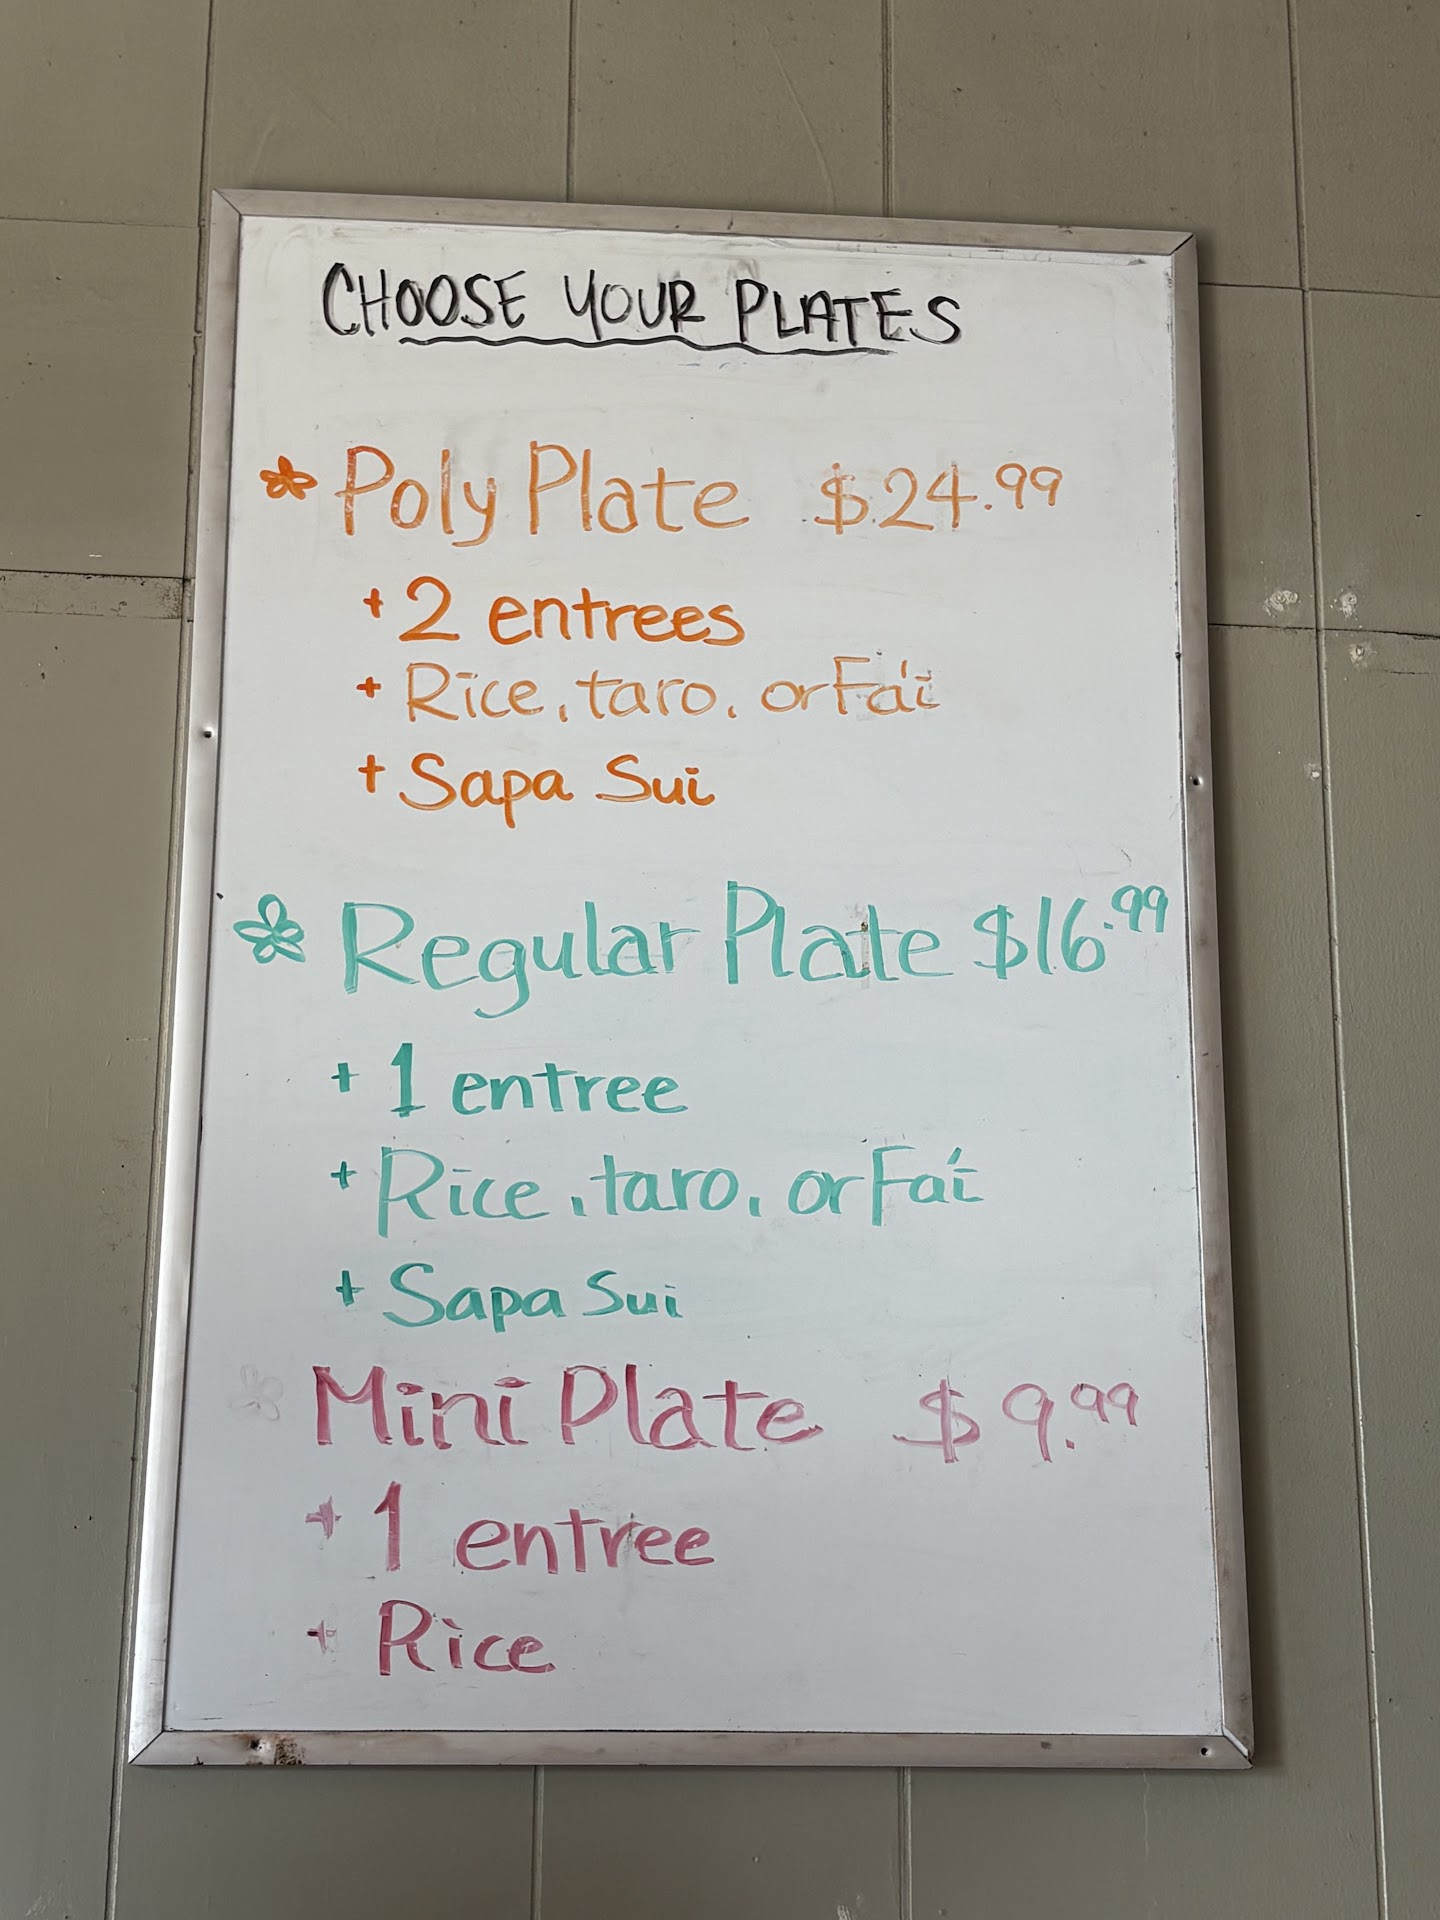 CHOOSE YOUR PLATES
Poly Plate $24.99
+ 2 entrees
+ Rice, taro, or Fa'i
+ Sapa Sui
Regular Plate $16.99
+ 1 entree
+ Rice, taro, or Fa'i
+ Sapa Sui
Mini Plate $9.99
+ 1 entree
+ Rice